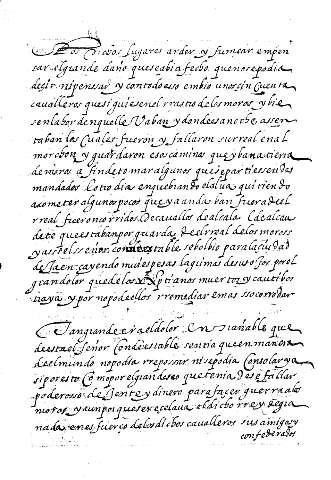 Los dichos lugares arder y fumear en pen
sar el grande daño que se abia fecho que no se podia
deçir ni pensar y con todo esso embio unos çincuenta
cavalleros que siguiesen el rrastro de los moros y bie
sen la bor de aquellos Yaban y donde esa noche asen
taban los Cuales fueron y fallaron su rreal en al
mor chon y guardaron esos caminos que yban a tierra
de moros a fin de tomar algunos que se partiesen de sus
manadas y otro dia en quebrando el alva quiriendo
acometer algunos pocos que ya andaban fuera del
rreal fueron corridos de cavallos de alcala y de alcau
dete que estaban por guarda de el real de los moros
y assi el señor condestable se bolbio para la ciudad
de Jaen cayendo muy espesas lagrimas de sus ojos por el
gran dolor que de los Xptianos muertos y cautibos
traya y por no podellos rremediar e mas socorrodar
Tan grande era el dolor en sañable que
de esta el señor Condestable sentia que en manera
del mundo no podia rreposar ni se podia Consolar ya
si por esto Como por el gran deseo que tenia de se fallar
poderoso de Jente y dinero para façer guerra a los
moros y aunque que se rreçelava el dicho rrey de gra
nada en esfuerço de los dichos cavalleros sus amigos y
confederados